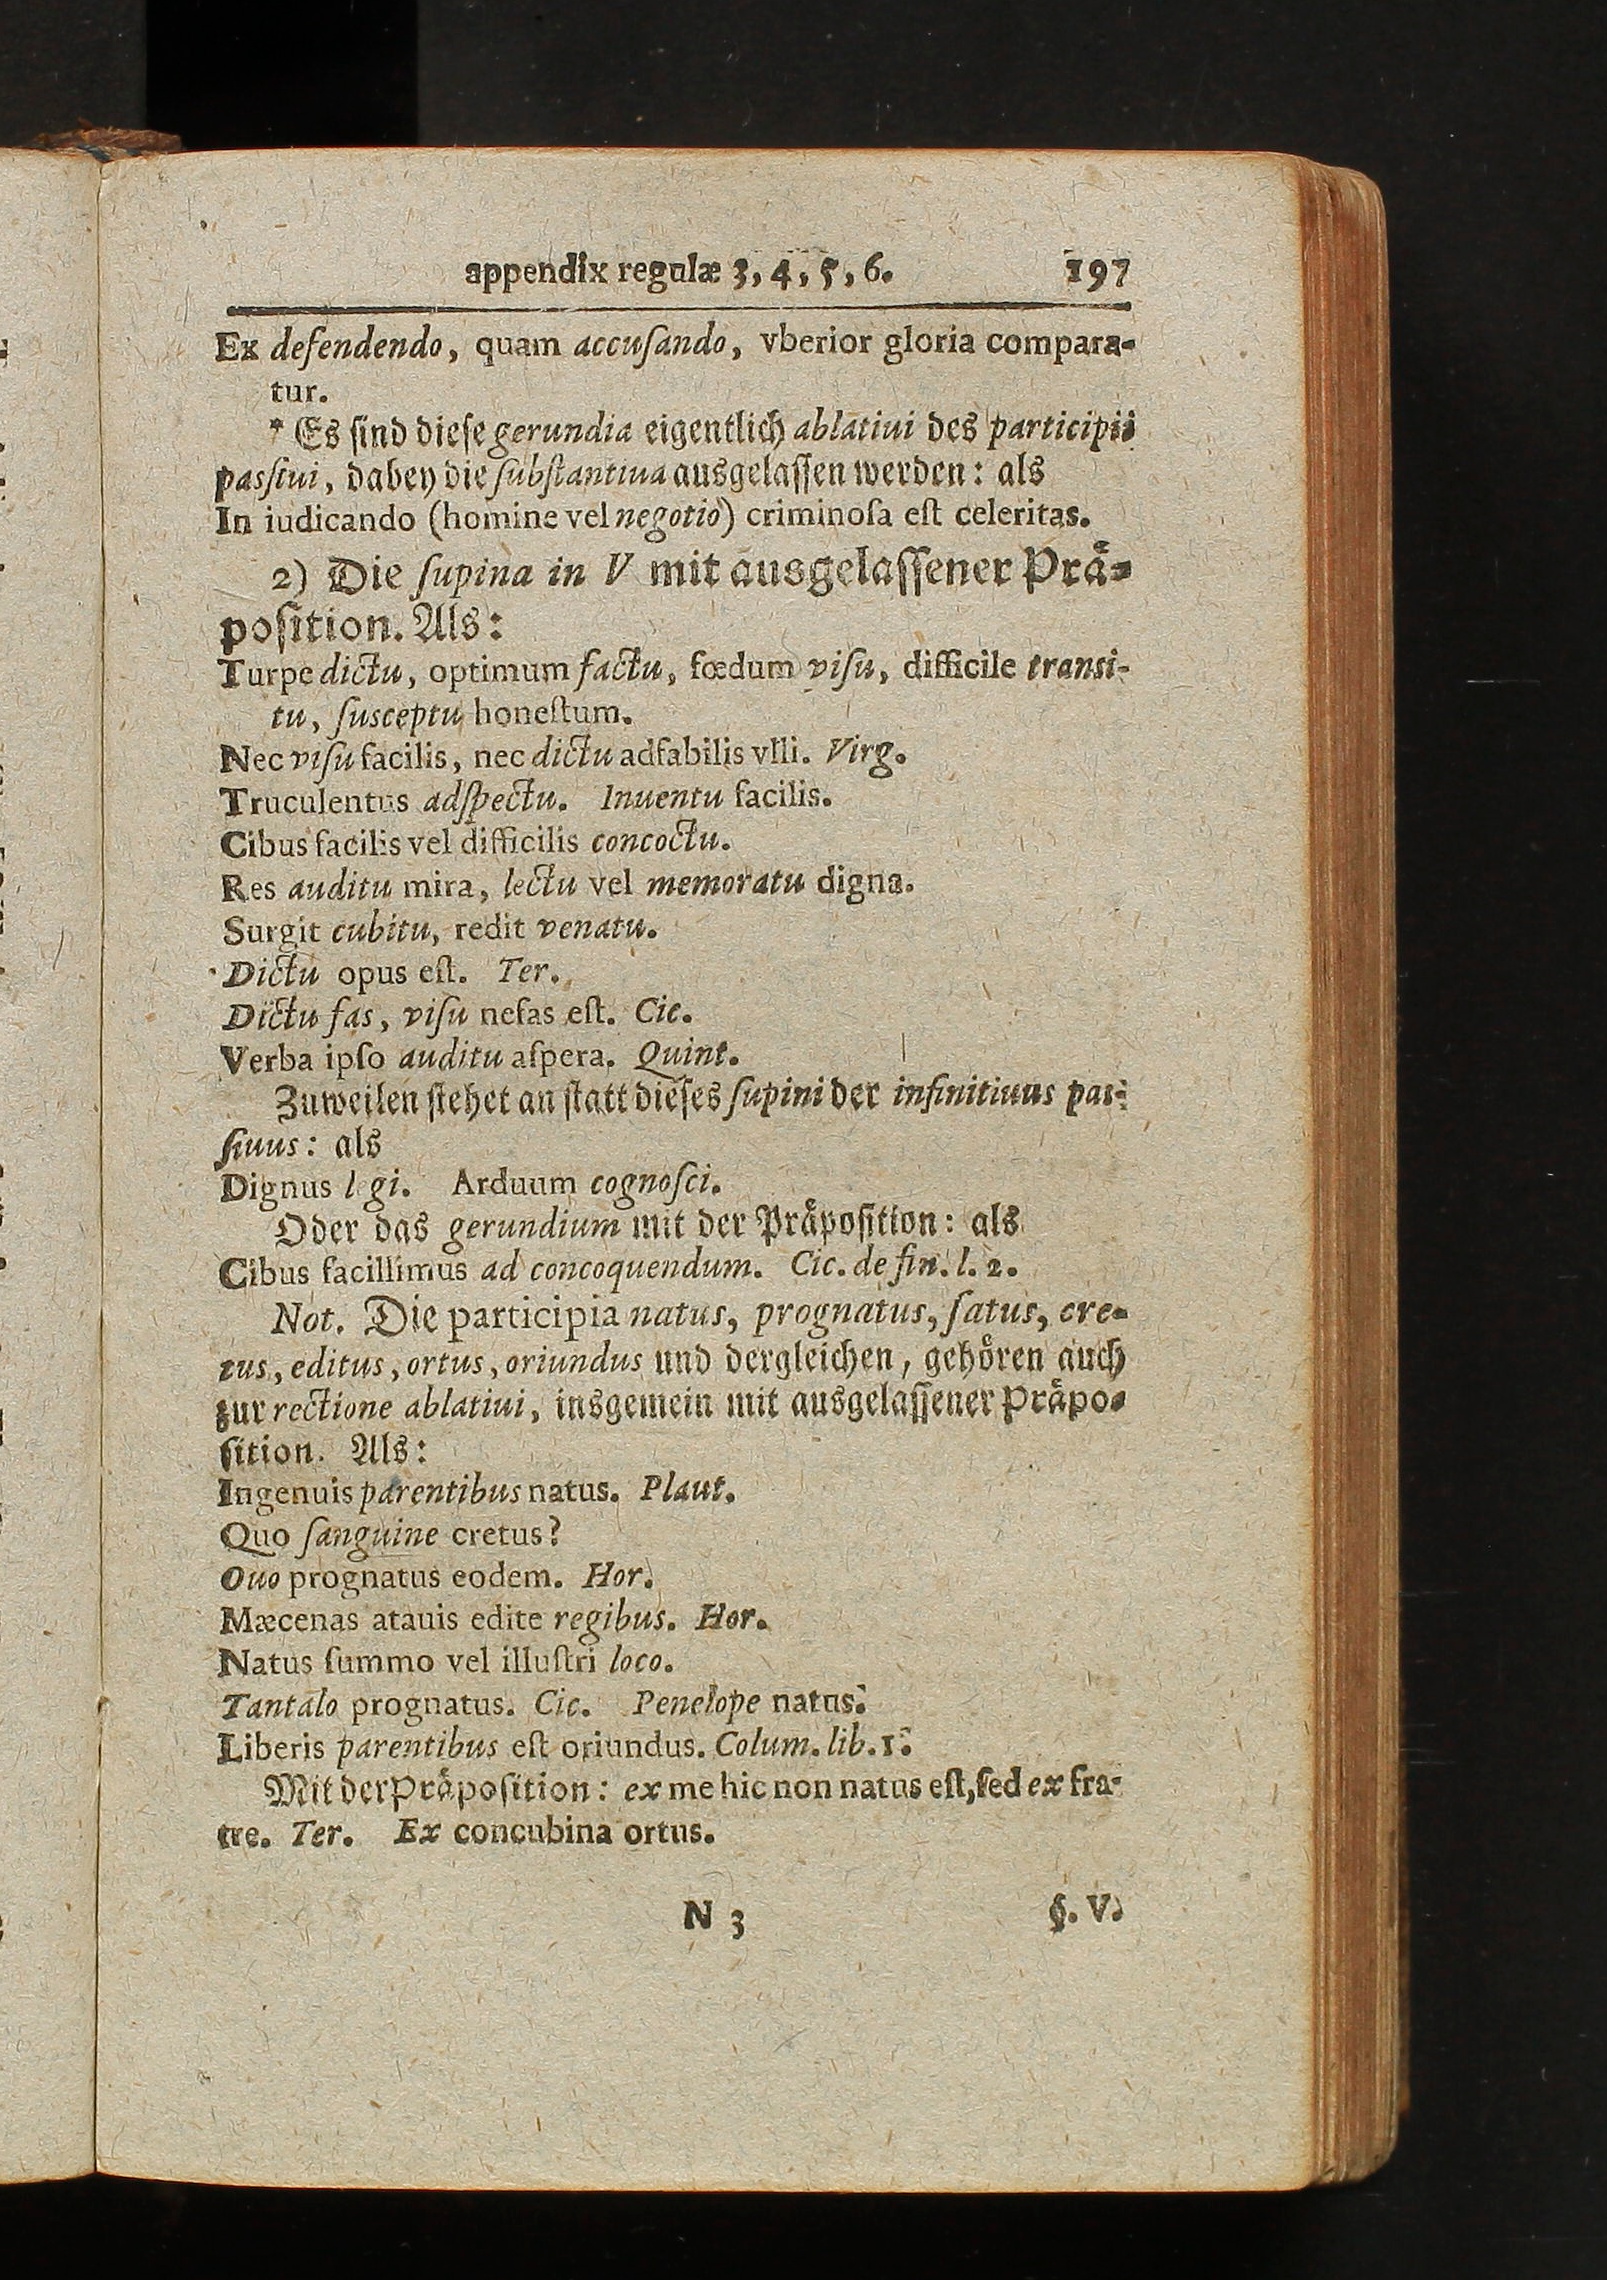 appendix regulæ 3, 4, 5, 6. 197
Ex defendendo, quam accuſando, vberior gloria compara-
tur.
* Es ſind dieſe gerundia eigentlich ablatiui des participii
paſſiui, dabey die ſubſtantiua ausgelaſſen werden: als
In iudicando (homine vel negotio) criminoſa eſt celeritas.
2) Die ſupina in V mit ausgelaſſener Prä-
poſition. Als:
Turpe dictu, optimum factu, fœdum viſu, difficile transi-
tu, ſusceptu honeſtum.
Nec viſu facilis, nec dictu adfabilis vlli. Virg.
Truculentus adſpectu. Inuentu facilis.
Cibus facilis vel difficilis concoctu.
Res auditu mira, lectu vel memoratu digna.
Surgit cubitu, redit venatu.
Dictu opus eſt. Ter.
Dictu fas, viſu nefas eſt. Cic.
Verba ipſo auditu aſpera. Quint.
Zuweilen ſtehet an ſtatt dieſes ſupini der infinitiuus paſ-
ſiuus: als
Dignus l gi. Arduum cognoſci.
Oder das gerundium mit der Präpoſition: als
Cibus facillimus ad concoquendum. Cic. de fin. l. 2.
Not. Die participia natus, prognatus, ſatus, cre-
tus, editus, ortus, oriundus und dergleichen, gehören auch
zur rectione ablatiui, insgemein mit ausgelaſſener Präpo-
ſition. Als:
Ingenuis parentibus natus. Plaut.
Quo ſanguine cretus?
Ouo prognatus eodem. Hor.
Mæcenas atauis edite regibus. Hor.
Natus ſummo vel illuſtri loco.
Tantalo prognatus. Cic. Penelope natus.
Liberis parentibus eſt oriundus. Colum. lib. 1.
Mit der Präpoſition: ex me hic non natus eſt, ſed ex fra-
tre. Ter. Ex concubina ortus.
N 3 §. V.